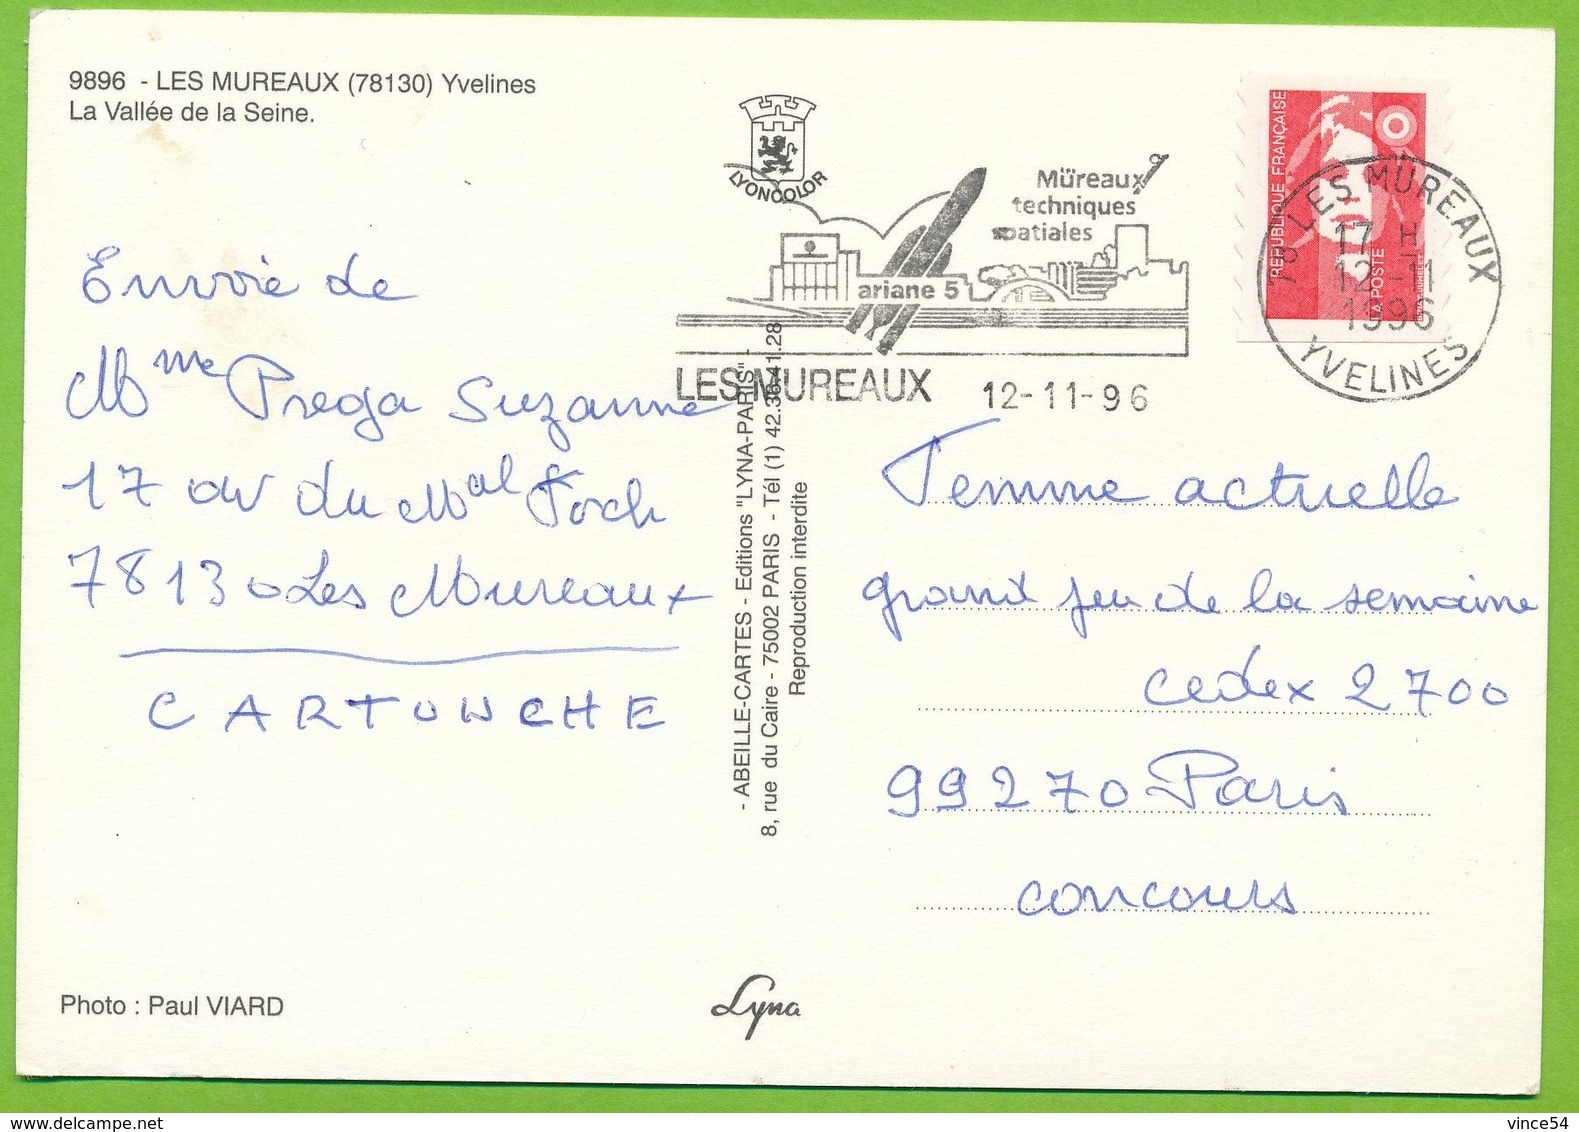 9896 - LES MUREAUX (78130) Yvelines
La Vallée de la Seine.
LYONCOLOR
Müreaux
techniques
spatiales
ariane 5
LES MUREAUX 12-11-96
RÉPUBLIQUE FRANÇAISE
LA POSTE
78 LES MUREAUX
17 H
12-11
1996
YVELINES
Envoie de
Mme Prega Suzanne
17 av du Mal Foch
78130 Les Mureaux
CARTOUCHE
- ABEILLE-CARTES - Editions "LYNA-PARIS" -
8, rue du Caire - 75002 PARIS - Tél (1) 42.36.41.28
Reproduction interdite
Femme actuelle
grand jeu de la semaine
cedex 2700
99270 Paris
concours
Photo : Paul VIARD
Lyna
delcampe.net
vince54